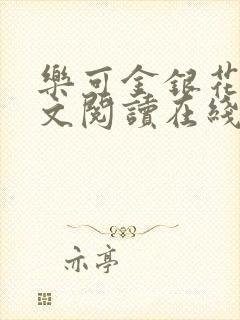 樂可金銀花
文閱讀在綫
亦亭